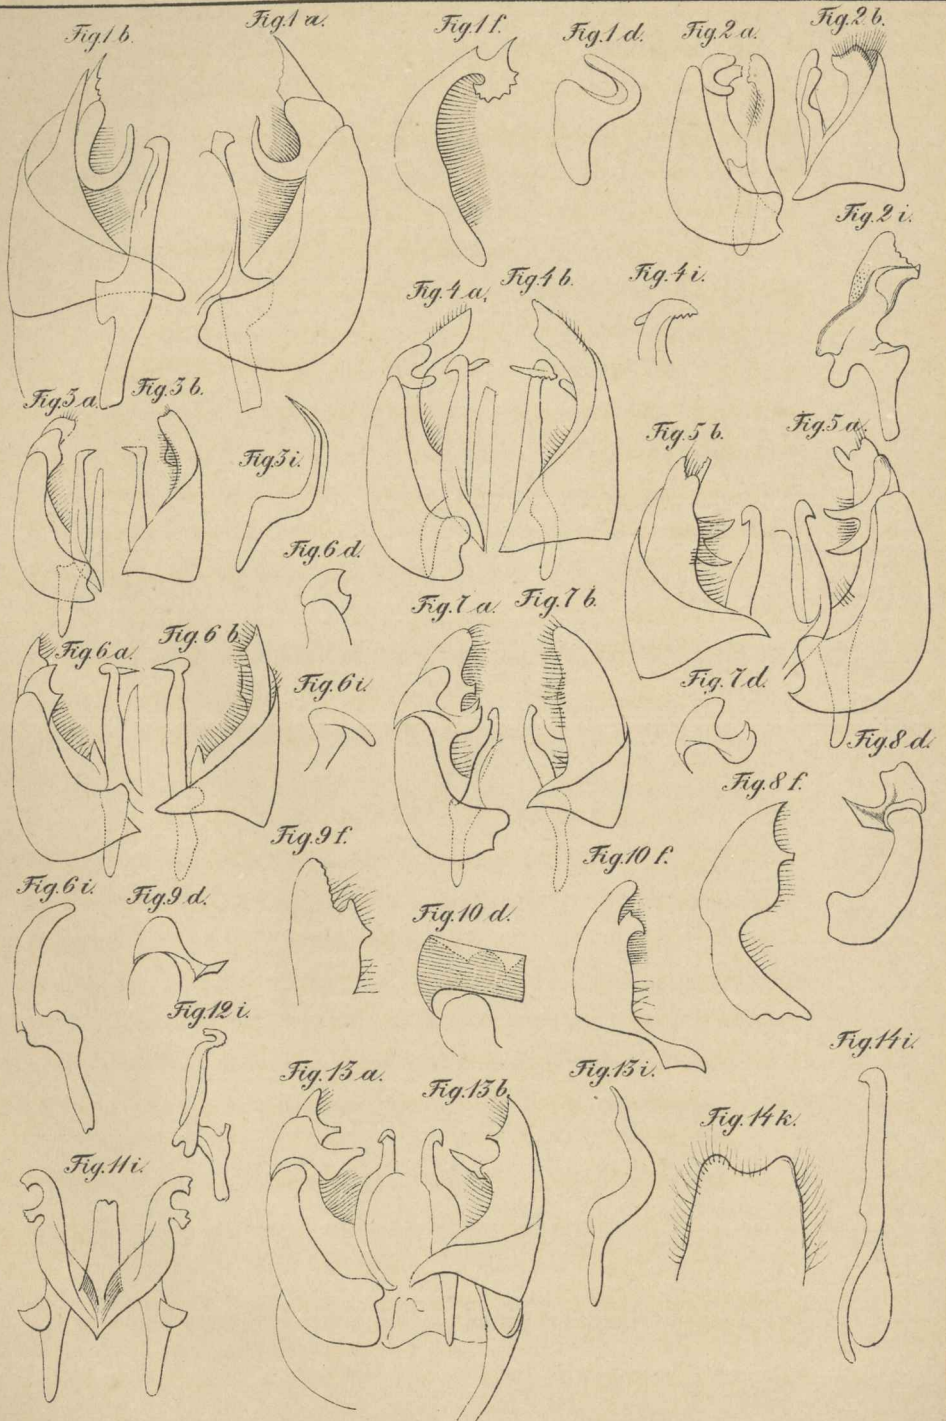 Fig.1 b.
Fig.1 a.
Fig.1 f.
Fig.1 d.
Fig.2 a.
Fig.2 b.
Fig.2 i.
Fig.4 a.
Fig.4 b.
Fig.4 i.
Fig.3 a.
Fig.3 b.
Fig.3 i.
Fig.5 b.
Fig.5 a.
Fig.6 d.
Fig.6 a.
Fig.6 b.
Fig.6 i.
Fig.7 a.
Fig.7 b.
Fig.7 d.
Fig.8 d.
Fig.8 f.
Fig.9 f.
Fig.10 f.
Fig.6 i.
Fig.9 d.
Fig.10 d.
Fig.12 i.
Fig.13 a.
Fig.13 b.
Fig.13 i.
Fig.14 i.
Fig.14 k.
Fig.11 i.